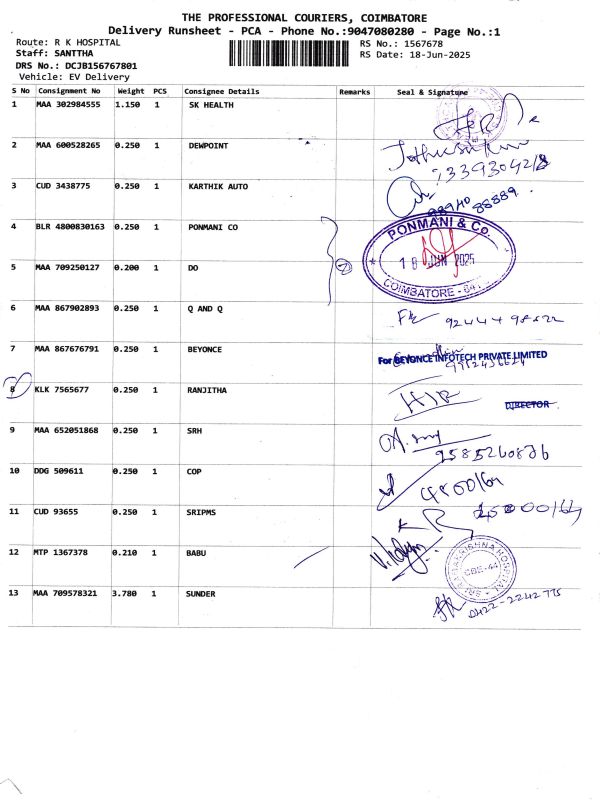 THE PROFESSIONAL COURIERS, COIMBATORE
Delivery Runsheet - PCA - Phone No.:9047080280 - Page No.:1
Route: R K HOSPITAL
Staff: SANTTHA
DRS No.: DCJB156767801
Vehicle: EV Delivery
RS No.: 1567678
RS Date: 18-Jun-2025
S No Consignment No Weight PCS Consignee Details Remarks Seal & Signature
1 MAA 302984555 1.150 1 SK HEALTH
2 MAA 600528265 0.250 1 DEWPOINT
3 CUD 3438775 0.250 1 KARTHIK AUTO
88889
4 BLR 4800830163 0.250 1 PONMANI CO
PONMANI & Co.
18 JUN 2025
COIMBATORE
5 MAA 709250127 0.200 1 DO
2
6 MAA 867902893 0.250 1 Q AND Q
7 MAA 867676791 0.250 1 BEYONCE
For BEYONCE INFOTECH PRIVATE LIMITED
8 KLK 7565677 0.250 1 RANJITHA
DIRECTOR
9 MAA 652051868 0.250 1 SRH
9585260876
10 DDG 509611 0.250 1 COP
11 CUD 93655 0.250 1 SRIPMS
12 MTP 1367378 0.210 1 BABU
SRI RAMAKRISHNA HOSPITAL
CBE-44
13 MAA 709578321 3.780 1 SUNDER
0422-2242775